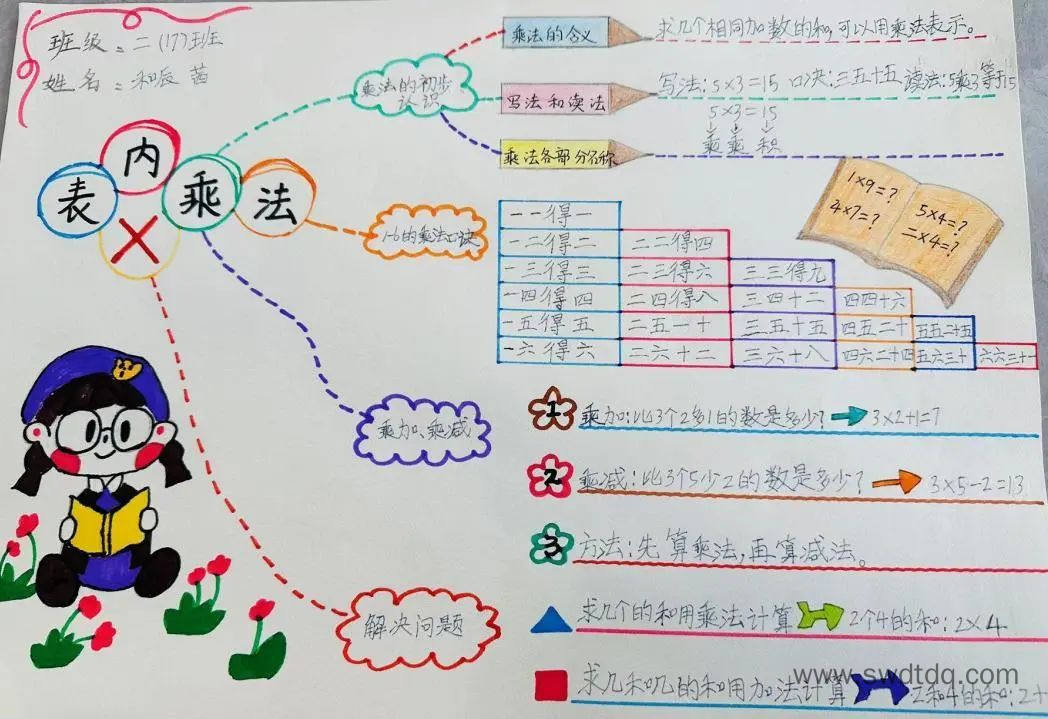 班级：二(17)班
姓名：和辰茜
表内乘法
×
乘法的初步认识
乘法的含义
求几个相同加数的和,可以用乘法表示。
写法和读法
写法：5×3=15 口决：三五十五 读法：5乘3等于15
乘法各部分名称
5×3=15
乘 乘 积
1-6的乘法口诀
一一得一
一二得二 二二得四
一三得三 二三得六 三三得九
一四得四 二四得八 三四十二 四四十六
一五得五 二五一十 三五十五 四五二十 五五二十五
一六得六 二六十二 三六十八 四六二十四 五六三十 六六三十
1×9=?
4×7=?
5×4=?
二×4=?
乘加、乘减
1 乘加：比3个2多1的数是多少? 3×2+1=7
2 乘减：比3个5少2的数是多少? 3×5-2=13
3 方法：先算乘法,再算减法。
解决问题
求几个的和用乘法计算 2个4的和：2×4
求几和几的和用加法计算 2和4的和：2+
www.swdtdq.com